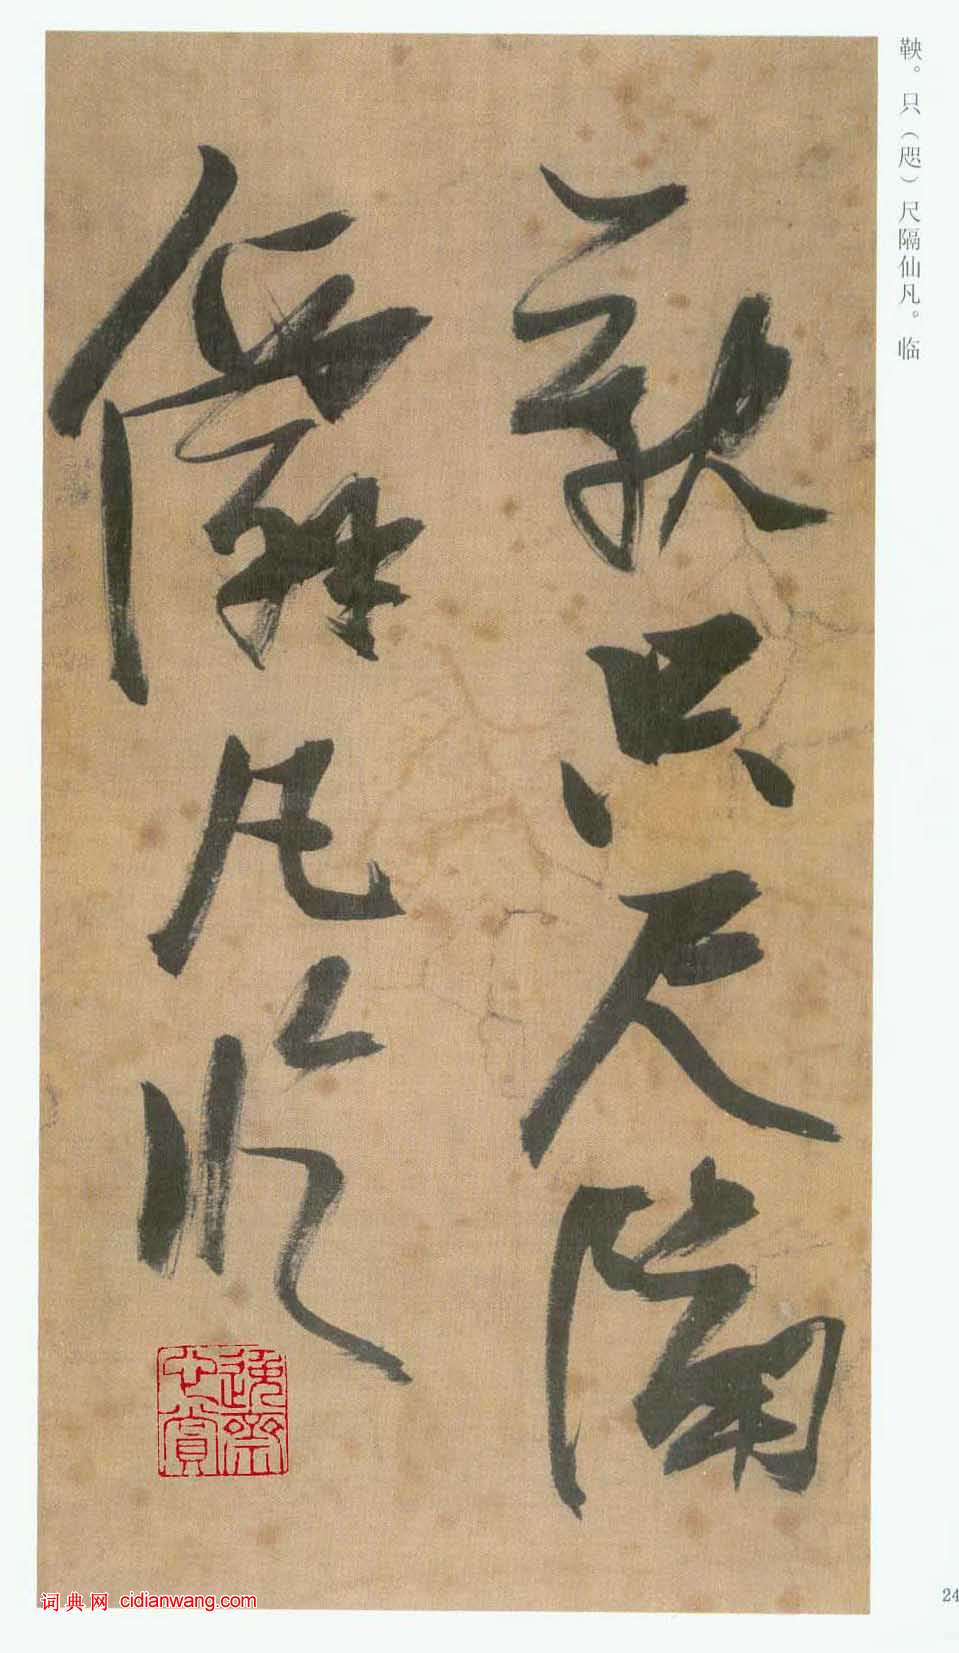 鞅。只（咫）尺隔仙凡。临
鞅只尺隔
僊凡临
逸斋
心赏
词典网 cidianwang.com
24